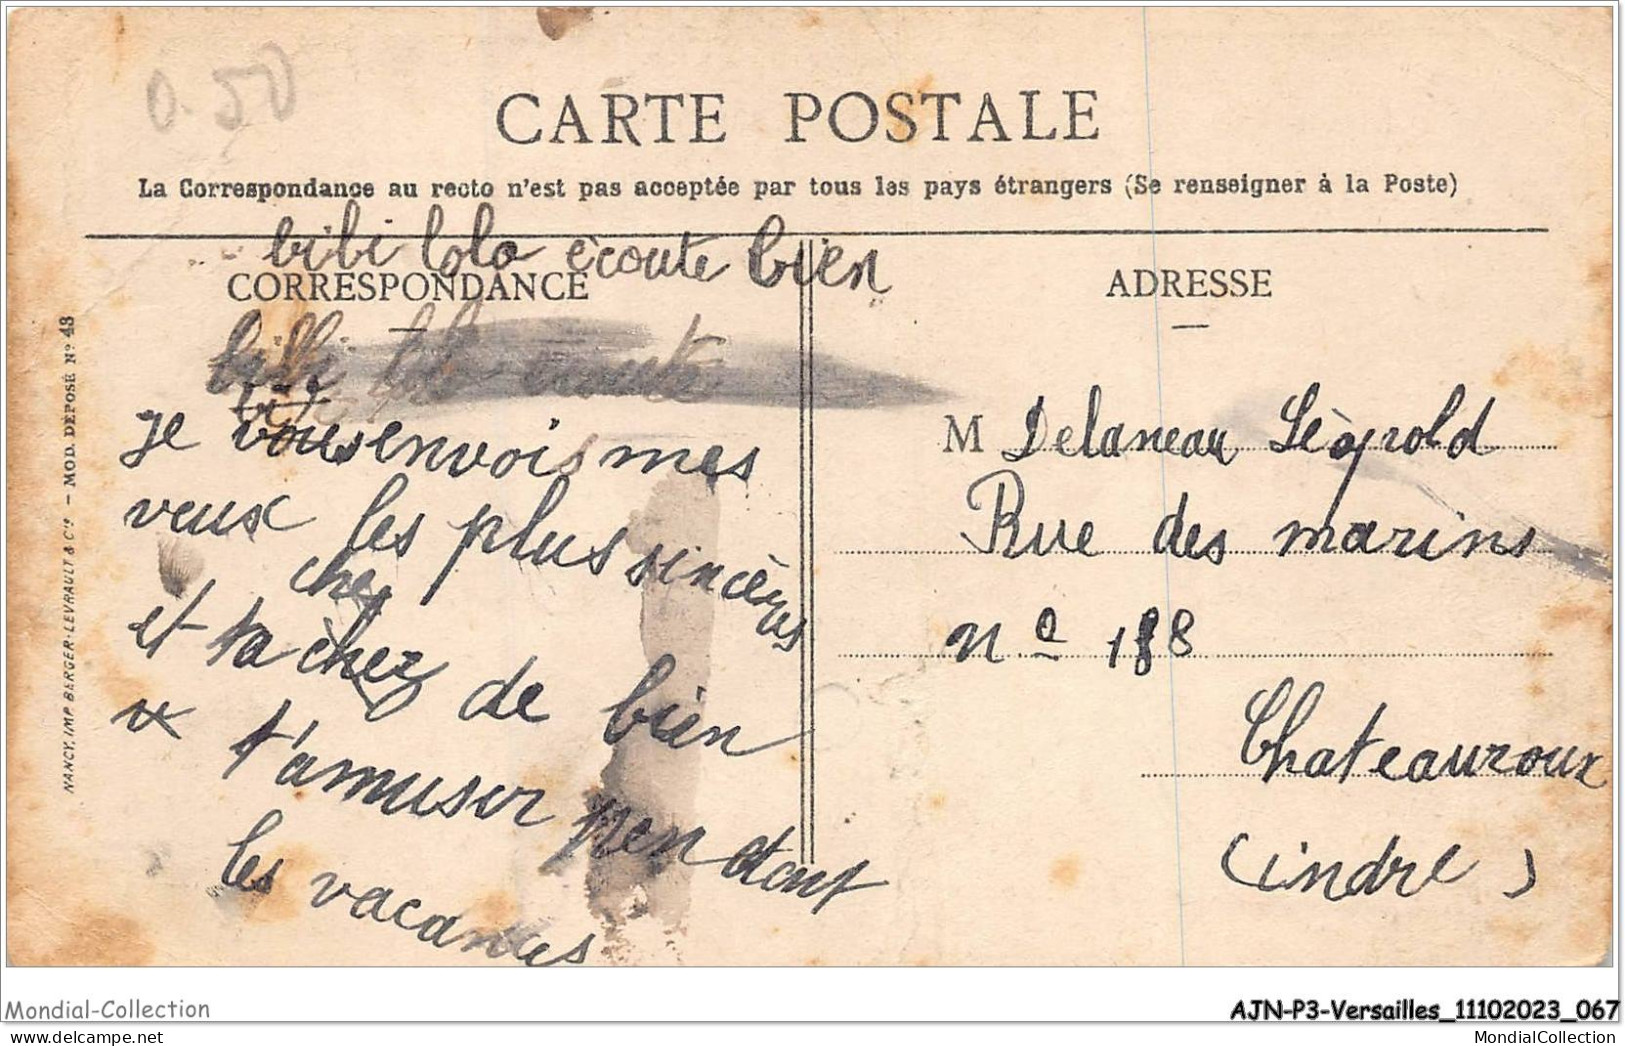 0.50
CARTE POSTALE
La Correspondance au recto n'est pas acceptée par tous les pays étrangers (Se renseigner à la Poste)
bibi lolo écoute bien
CORRESPONDANCE
bibi lolo écoute
je vous envois mes
veux les plus sincères
chez
et ta chez de bien
t'amuser pendant
les vacances
NANCY, IMP. BERGER-LEVRAULT & Cie - MOD. DÉPOSÉ No 43
ADRESSE
M Delaneau Lèopold
Rue des marins
no 188
Chateauroux
(indre)
Mondial-Collection
AJN-P3-Versailles_11102023_067
MondialCollection